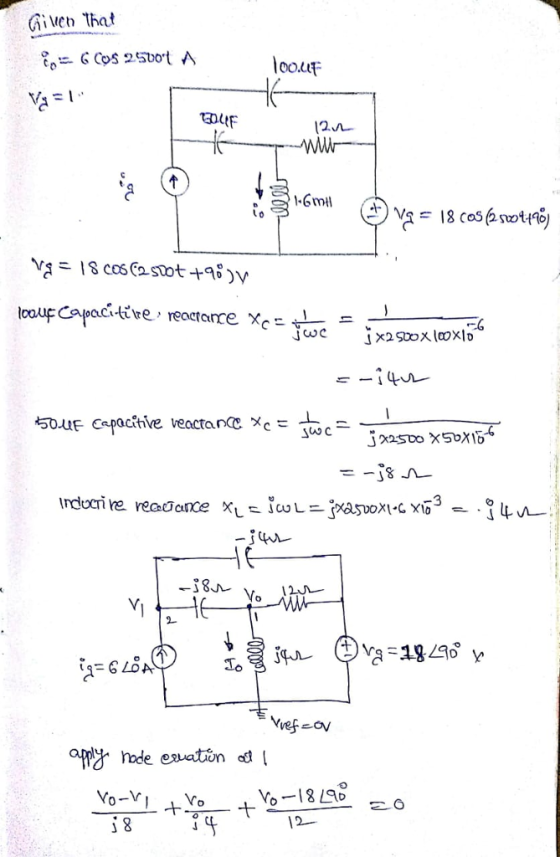 Given that
i₀ = 6 cos 2500t A
Vg = 1
100uF
50uF
12Ω
ig
i₀
1.6mH
Vg = 18 cos(2500t+90°)
Vg = 18 cos(2500t +90°)V
100uf capacitive reactance Xc = 1/jωc = 1/(j×2500×100×10⁻⁶)
= -j4Ω
50uF capacitive reactance Xc = 1/jωc = 1/(j×2500×50×10⁻⁶)
= -j8 Ω
Inductive reactance XL = jωL = j×2500×1.6×10⁻³ = j4Ω
-j4Ω
-j8Ω
V₀
12Ω
V₁
2
1
ig=6∠0°A
I₀
j4Ω
Vg = 18∠90° V
Vref = 0V
apply node equation at 1
(V₀-V₁)/j8 + V₀/j4 + (V₀-18∠90°)/12 = 0